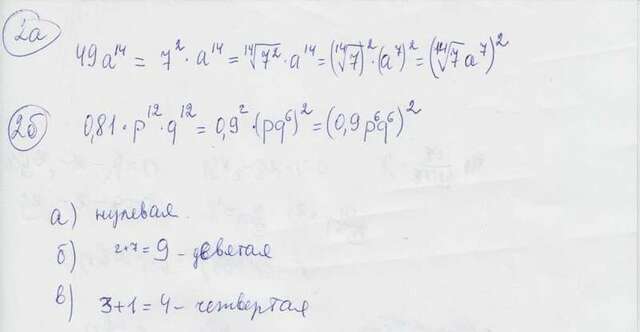 2а
49a¹⁴ = 7² · a¹⁴ = ¹⁴√7² · a¹⁴ = (¹⁴√7)² · (a⁷)² = (¹⁴√7 a⁷)²
2б
0,81 · p¹² · q¹² = 0,9² · (pq⁶)² = (0,9p⁶q⁶)²
а) нулевая.
б) 2+7 = 9 – девятая
в) 3+1 = 4 – четвертая